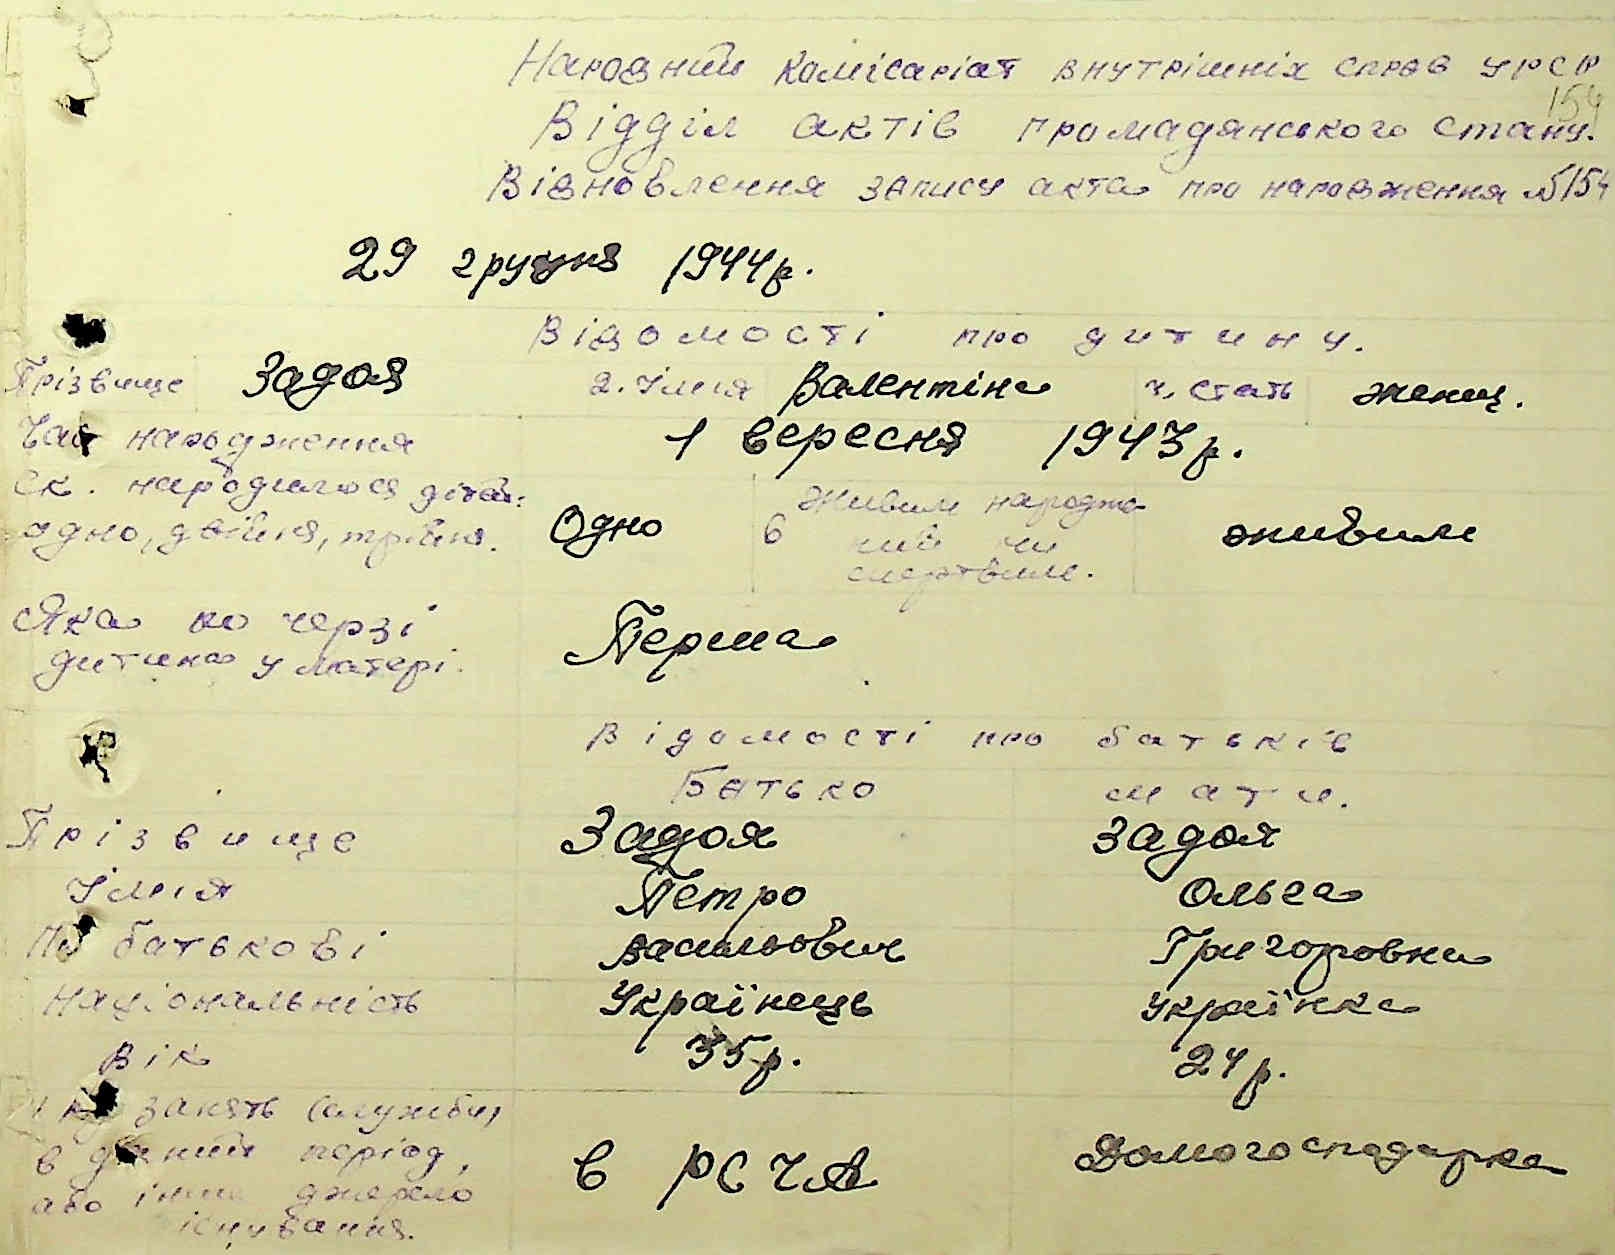 Народний комісаріат внутрішніх справ УРСР
154
Відділ актів громадянського стану.
Відновлення запису акта про народження №154
29 грудня 1944р.
Відомості про дитину.
Прізвище Задоя 2. Імія Валентіна 4. стать женщ.
Час народження 1 вересня 1943р.
ск. народилося дітей:
одно, двійня, трійня. Одно 6 Живим народже
ний чи живим
смертвим.
Яка по черзі Перша
дитина у матері.
Відомості про батьків
Батько мати.
Прізвище Задоя Задоя
Імія Петро Ольга
По батькові Васильович Григоровна
Національність Українець Українка
Вік 35р. 24р.
занять (службу)
в даний період, в РСЧА Домогосподарка
або інше джерело
існування.